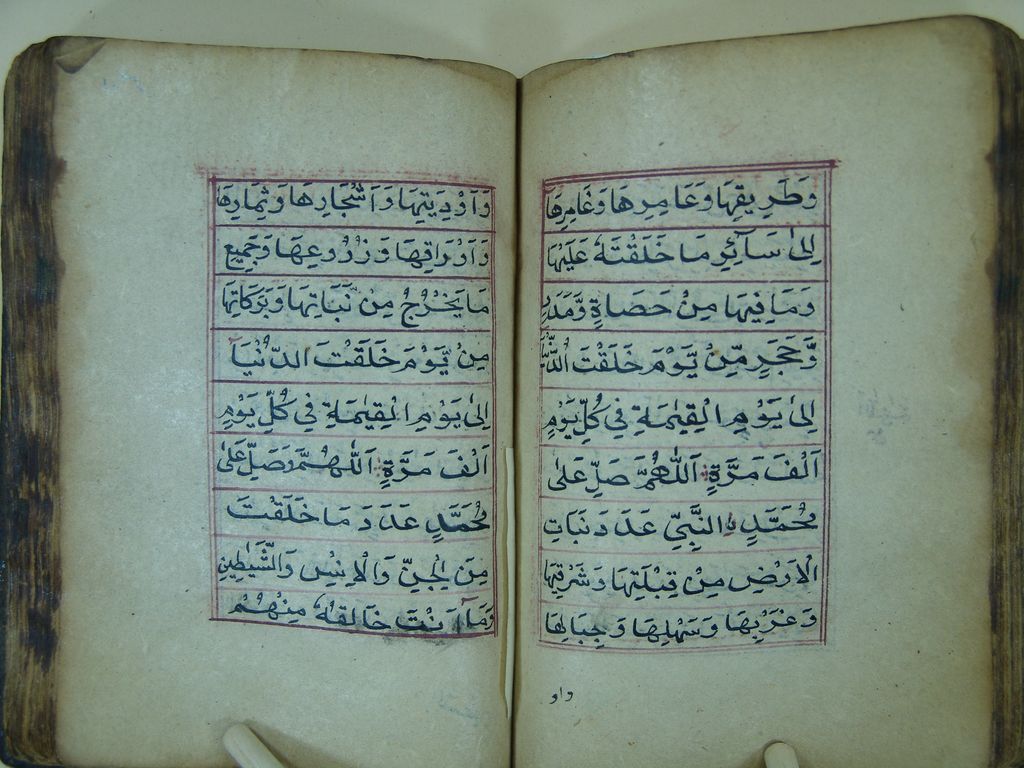 وَطَرِيقِهَا وَعَامِرِهَا وَغَامِرِهَا
اِلىٰ سَآئِرِ مَا خَلَقْتَهُ عَلَيْهَا
وَمَا فِيهَا مِنْ حَصَاةٍ وَّمَدَرٍ
وَّحَجَرٍ مِّنْ يَّوْمَ خَلَقْتَ الدُّنْيَا
اِلىٰ يَوْمِ الْقِيٰمَةِ فِي كُلِّ يَوْمٍ
اَلْفَ مَرَّةٍ اَللّٰهُمَّ صَلِّ عَلىٰ
مُحَمَّدٍ النَّبِيِّ عَدَدَ نَبَاتِ
الْاَرْضِ مِنْ قِبْلَتِهَا وَشَرْقِهَا
وَغَرْبِهَا وَسَهْلِهَا وَجِبَالِهَا
واو
وَاَوْدِيَتِهَا وَاَشْجَارِهَا وَثِمَارِهَا
وَاَوْرَاقِهَا وَزُرُوعِهَا وَجَمِيعِ
مَا يَخْرُجُ مِنْ نَّبَاتِهَا وَبَرَكَاتِهَا
مِنْ يَّوْمَ خَلَقْتَ الدُّنْيَا
اِلىٰ يَوْمِ الْقِيٰمَةِ فِي كُلِّ يَوْمٍ
اَلْفَ مَرَّةٍ اَللّٰهُمَّ وَصَلِّ عَلىٰ
مُحَمَّدٍ عَدَدَ مَا خَلَقْتَ
مِنَ الْجِنِّ وَالْاِنْسِ وَالشَّيٰطِيْنِ
وَمَا اَنْتَ خَالِقُهُ مِنْهُمْ